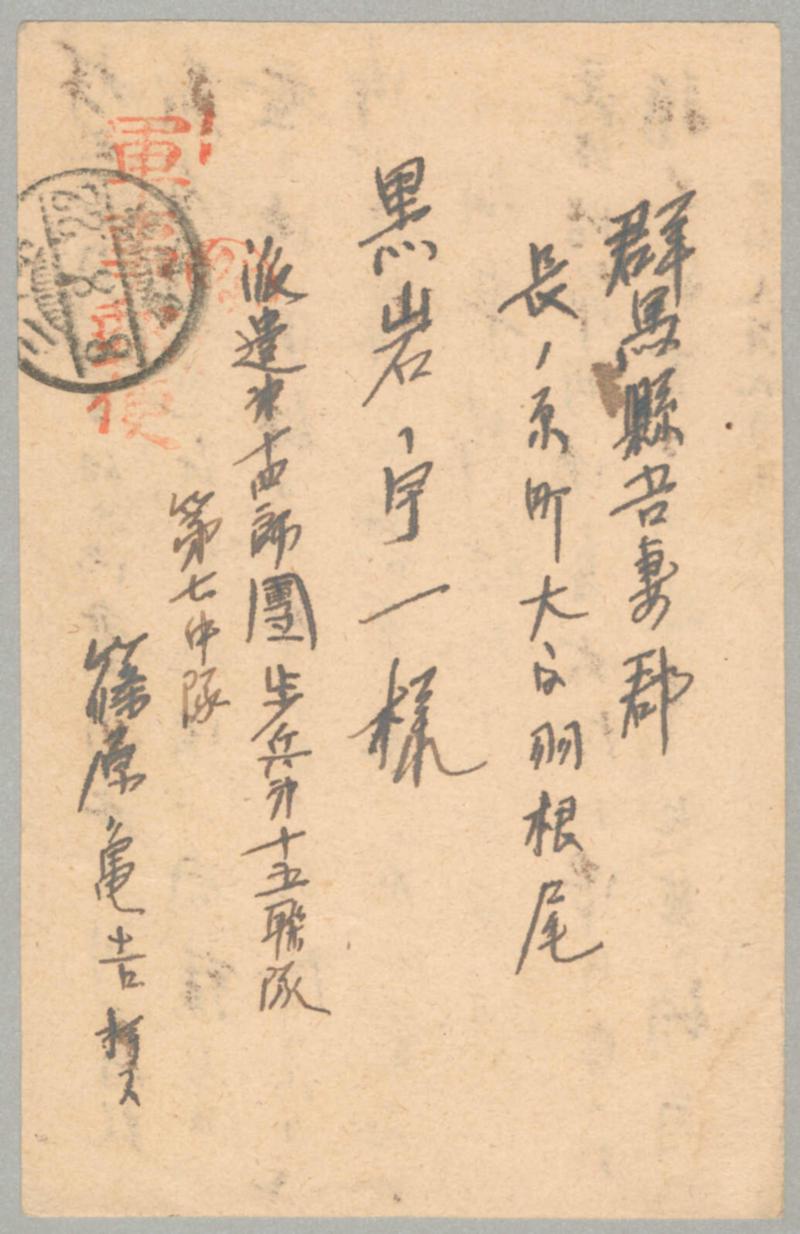 群馬縣吾妻郡
長ノ原町大字羽根尾
黒岩宇一様
派遣第十四師團歩兵第十五聯隊
第七中隊
篠原亀吉拝ス
軍事郵便